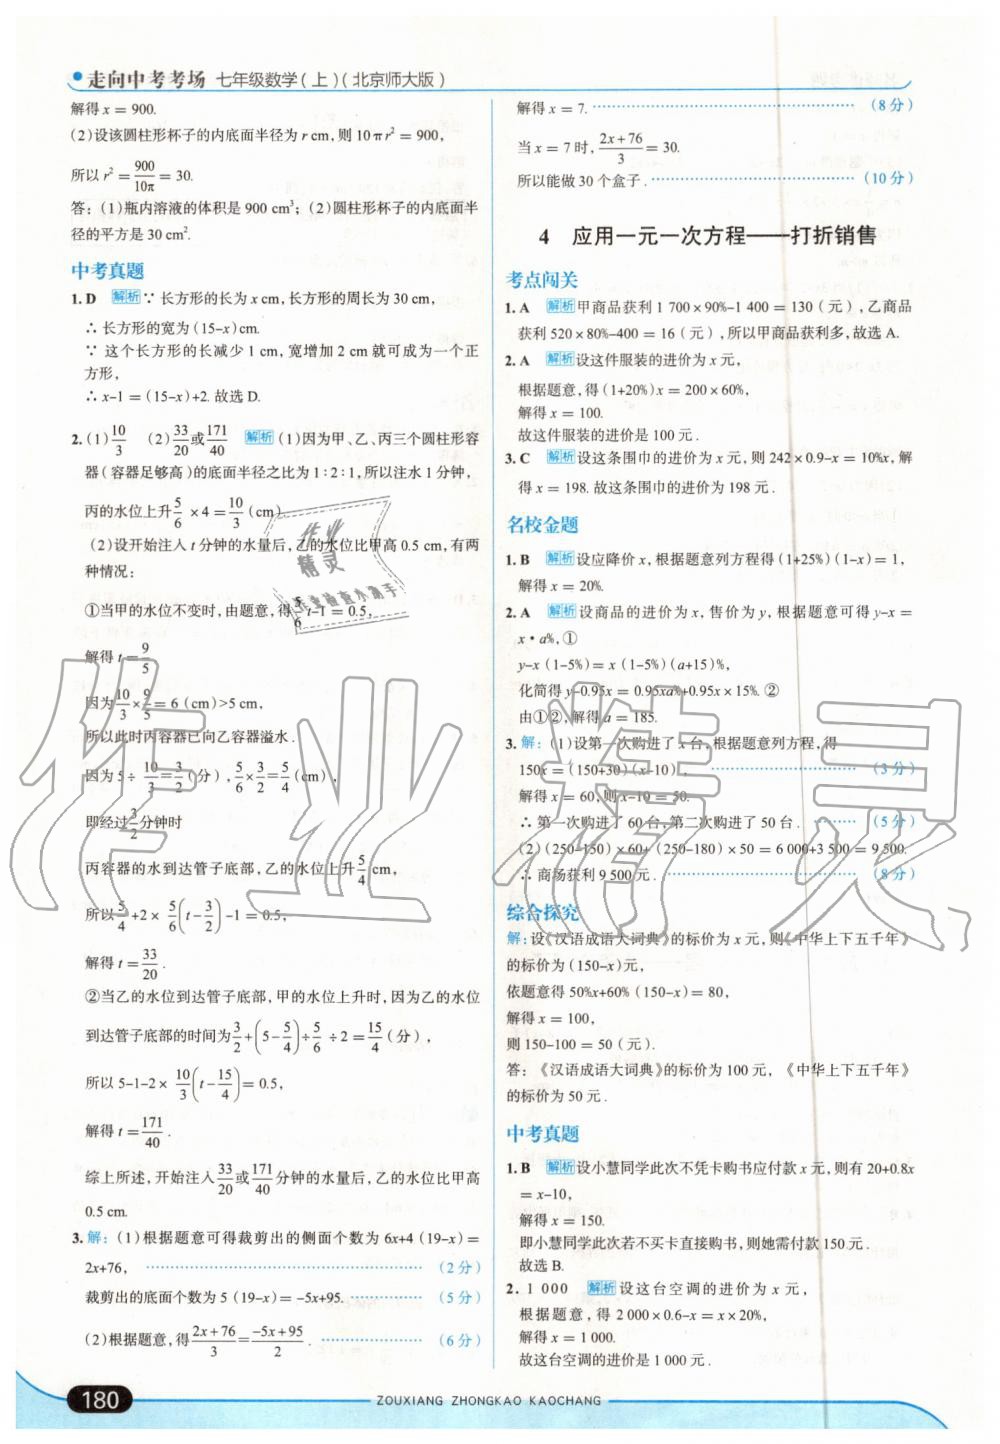 走向中考考场 七年级数学(上)(北京师大版)
解得 x = 900.
(2)设该圆柱形杯子的内底面半径为 r cm,则 10πr² = 900,
所以 r² = 900/10π = 30.
答:(1)瓶内溶液的体积是 900 cm³;(2)圆柱形杯子的内底面半
径的平方是 30 cm².
中考真题
1. D 解析 ∵ 长方形的长为 x cm,长方形的周长为 30 cm,
∴ 长方形的宽为 (15-x)cm.
∵ 这个长方形的长减少 1 cm,宽增加 2 cm 就可成为一个正
方形,
∴ x-1 = (15-x)+2. 故选 D.
2. (1) 10/3 (2) 33/20 或 171/40 解析 (1)因为甲、乙、丙三个圆柱形容
器(容器足够高)的底面半径之比为 1∶2∶1,所以注水 1 分钟,
丙的水位上升 5/6 ×4 = 10/3 (cm).
(2)设开始注入 t 分钟的水量后,乙的水位比甲高 0.5 cm,有两
种情况:
①当甲的水位不变时,由题意,得 5/6 t-1 = 0.5,
解得 t = 9/5.
因为 10/3 × 9/5 = 6 (cm)>5 cm,
所以此时丙容器已向乙容器溢水.
因为 5÷ 10/3 = 3/2 (分), 5/6 × 3/2 = 5/4 (cm),
即经过 3/2 分钟时
丙容器的水到达管子底部,乙的水位上升 5/4 cm,
所以 5/4 +2× 5/6 (t- 3/2) -1 = 0.5,
解得 t = 33/20.
②当乙的水位到达管子底部,甲的水位上升时,因为乙的水位
到达管子底部的时间为 3/2 + (5- 5/4) ÷ 5/6 ÷2 = 15/4 (分),
所以 5-1-2× 10/3 (t- 15/4) = 0.5,
解得 t = 171/40.
综上所述,开始注入 33/20 或 171/40 分钟的水量后,乙的水位比甲高
0.5 cm.
3. 解:(1)根据题意可得裁剪出的侧面个数为 6x+4 (19-x) =
2x+76, (2分)
裁剪出的底面个数为 5 (19-x)= -5x+95. (5分)
(2)根据题意,得 2x+76/3 = -5x+95/2. (6分)
解得 x = 7. (8分)
当 x = 7 时, 2x+76/3 = 30.
所以能做 30 个盒子. (10分)
4 应用一元一次方程——打折销售
考点闯关
1. A 解析 甲商品获利 1 700×90%-1 400 = 130 (元),乙商品
获利 520×80%-400 = 16 (元),所以甲商品获利多,故选 A.
2. A 解析 设这件服装的进价为 x 元,
根据题意,得 (1+20%)x = 200×60%,
解得 x = 100.
故这件服装的进价是 100 元.
3. C 解析 设这条围巾的进价为 x 元,则 242×0.9-x = 10%x,解
得 x = 198. 故这条围巾的进价为 198 元.
名校金题
1. B 解析 设应降价 x,根据题意列方程得 (1+25%) (1-x) = 1,
解得 x = 20%.
2. A 解析 设商品的进价为 x,售价为 y,根据题意可得 y-x =
x·a%,①
y-x (1-5%) = x (1-5%) (a+15)%,
化简得 y-0.95x = 0.95xa%+0.95x×15%. ②
由①②,解得 a = 185.
3. 解:(1)设第一次购进了 x 台,根据题意列方程,得
150x = (150+30) (x-10), (3分)
解得 x = 60,则 x-10 = 50.
∴ 第一次购进了 60 台,第二次购进了 50 台. (5分)
(2) (250-150) ×60+ (250-180) ×50 = 6 000+3 500 = 9 500.
∴ 商场获利 9 500 元. (8分)
综合探究
解:设《汉语成语大词典》的标价为 x 元,则《中华上下五千年》
的标价为 (150-x)元,
依题意得 50%x+60% (150-x) = 80,
解得 x = 100,
则 150-100 = 50 (元).
答:《汉语成语大词典》的标价为 100 元,《中华上下五千年》
的标价为 50 元.
中考真题
1. B 解析 设小慧同学此次不凭卡购书应付款 x 元,则有 20+0.8x
= x-10,
解得 x = 150.
即小慧同学此次若不买卡直接购书,则她需付款 150 元.
故选 B.
2. 1 000 解析 设这台空调的进价为 x 元,
根据题意,得 2 000×0.6-x = x×20%,
解得 x = 1 000.
故这台空调的进价是 1 000 元.
180
ZOUXIANG ZHONGKAO KAOCHANG
作业精灵
作业
精灵
作业检查小助手